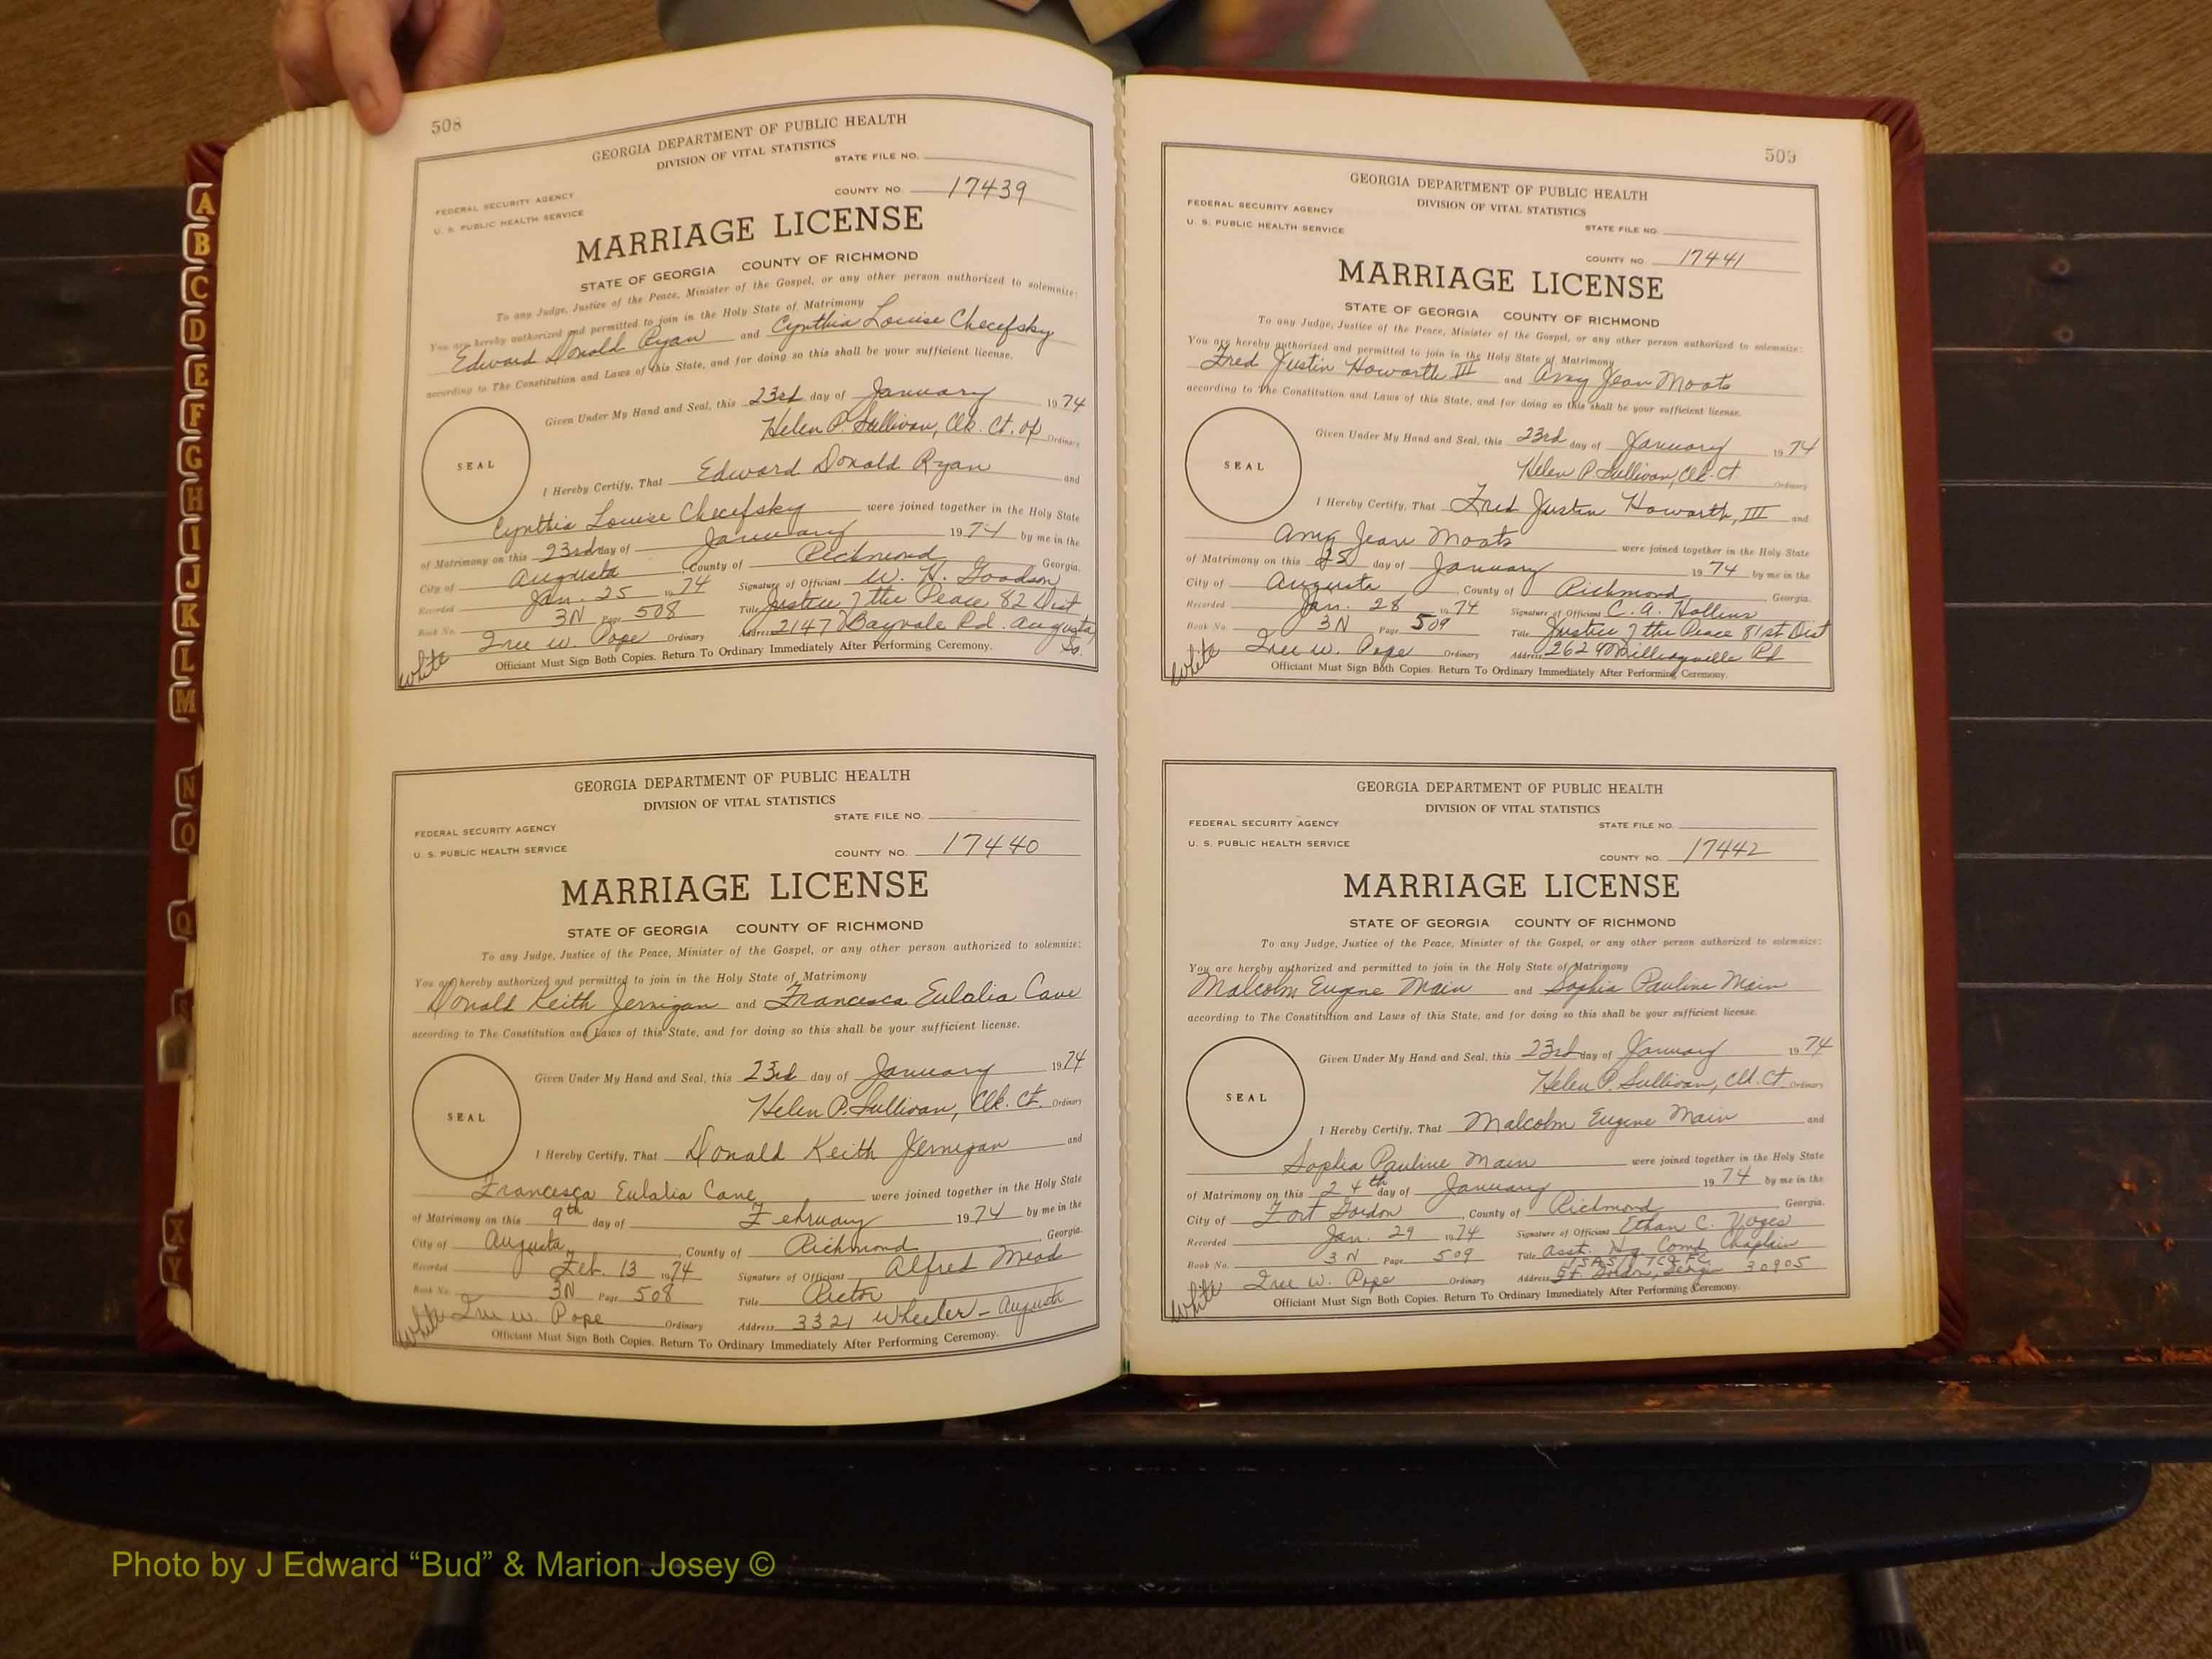 508
GEORGIA DEPARTMENT OF PUBLIC HEALTH
DIVISION OF VITAL STATISTICS
STATE FILE NO.
FEDERAL SECURITY AGENCY
COUNTY NO. 17439
U. S. PUBLIC HEALTH SERVICE
MARRIAGE LICENSE
STATE OF GEORGIA COUNTY OF RICHMOND
To any Judge, Justice of the Peace, Minister of the Gospel, or any other person authorized to solemnize:
You are hereby authorized and permitted to join in the Holy State of Matrimony
Edward Donald Ryan and Cynthia Louise Checefsky
according to The Constitution and Laws of this State, and for doing so this shall be your sufficient license.
Given Under My Hand and Seal, this 23rd day of January 1974
Helen P. Sullivan, Clk. Ct. of Ordinary
SEAL
I Hereby Certify, That Edward Donald Ryan and
Cynthia Louise Checefsky were joined together in the Holy State
of Matrimony on this 23rd day of January 1974 by me in the
City of Augusta, County of Richmond Georgia.
Recorded Jan. 25 1974 Signature of Officiant W. H. Goodson
Book No. 3N Page 508 Title Justice of the Peace 82 Dist
Ordinary Address 2147 Bayvale Rd. Augusta, Ga.
W. Pope
White
Officiant Must Sign Both Copies. Return To Ordinary Immediately After Performing Ceremony.
GEORGIA DEPARTMENT OF PUBLIC HEALTH
DIVISION OF VITAL STATISTICS
STATE FILE NO.
FEDERAL SECURITY AGENCY
U. S. PUBLIC HEALTH SERVICE
COUNTY NO. 17440
MARRIAGE LICENSE
STATE OF GEORGIA COUNTY OF RICHMOND
To any Judge, Justice of the Peace, Minister of the Gospel, or any other person authorized to solemnize:
You are hereby authorized and permitted to join in the Holy State of Matrimony
Donald Keith Jernigan and Francesca Eulalia Cave
according to The Constitution and Laws of this State, and for doing so this shall be your sufficient license.
Given Under My Hand and Seal, this 23rd day of January 1974
Helen P. Sullivan, Clk. Ct. Ordinary
SEAL
I Hereby Certify, That Donald Keith Jernigan and
Francesca Eulalia Cave were joined together in the Holy State
of Matrimony on this 9th day of February 1974 by me in the
City of Augusta, County of Richmond, Georgia.
Recorded Feb. 13 1974 Signature of Officiant Alfred Mead
Book No. 3N Page 508 Title Rector
W. Pope Ordinary Address 3321 Wheeler - Augusta
White
Officiant Must Sign Both Copies. Return To Ordinary Immediately After Performing Ceremony.
509
GEORGIA DEPARTMENT OF PUBLIC HEALTH
DIVISION OF VITAL STATISTICS
FEDERAL SECURITY AGENCY
U. S. PUBLIC HEALTH SERVICE
STATE FILE NO.
COUNTY NO. 17441
MARRIAGE LICENSE
STATE OF GEORGIA COUNTY OF RICHMOND
To any Judge, Justice of the Peace, Minister of the Gospel, or any other person authorized to solemnize:
You are hereby authorized and permitted to join in the Holy State of Matrimony
Fred Justin Howorth III and Amy Jean Moats
according to The Constitution and Laws of this State, and for doing so this shall be your sufficient license.
Given Under My Hand and Seal, this 23rd day of January 1974
Helen P. Sullivan, Clk. Ct. Ordinary
SEAL
I Hereby Certify, That Fred Justin Howorth, III and
Amy Jean Moats were joined together in the Holy State
of Matrimony on this 25 day of January 1974 by me in the
City of Augusta, County of Richmond Georgia.
Recorded Jan. 28 1974 Signature of Officiant C. A. Hollins
Book No. 3N Page 509 Title Justice of the Peace 81st Dist
W. Pope Ordinary Address Milledgeville Rd
White
Officiant Must Sign Both Copies. Return To Ordinary Immediately After Performing Ceremony.
GEORGIA DEPARTMENT OF PUBLIC HEALTH
DIVISION OF VITAL STATISTICS
FEDERAL SECURITY AGENCY
STATE FILE NO.
U. S. PUBLIC HEALTH SERVICE
COUNTY NO. 17442
MARRIAGE LICENSE
STATE OF GEORGIA COUNTY OF RICHMOND
To any Judge, Justice of the Peace, Minister of the Gospel, or any other person authorized to solemnize:
You are hereby authorized and permitted to join in the Holy State of Matrimony
Malcolm Eugene Main and Sophia Pauline Main
according to The Constitution and Laws of this State, and for doing so this shall be your sufficient license.
Given Under My Hand and Seal, this 23rd day of January 1974
Helen P. Sullivan, Clk. Ct. Ordinary
SEAL
I Hereby Certify, That Malcolm Eugene Main and
Sophia Pauline Main were joined together in the Holy State
of Matrimony on this 24th day of January 1974 by me in the
City of Fort Gordon, County of Richmond Georgia.
Recorded Jan. 29 1974 Signature of Officiant Ethan C.
Book No. 3N Page 509 Title Asst. Comd Chaplain
W. Pope Ordinary Address Ft. Gordon, Georgia 30905
White
Officiant Must Sign Both Copies. Return To Ordinary Immediately After Performing Ceremony.
A
B
C
D
E
F
G
H
I
J
K
L
M
N
O
Q
S
X
Y
Photo by J Edward “Bud” & Marion Josey ©